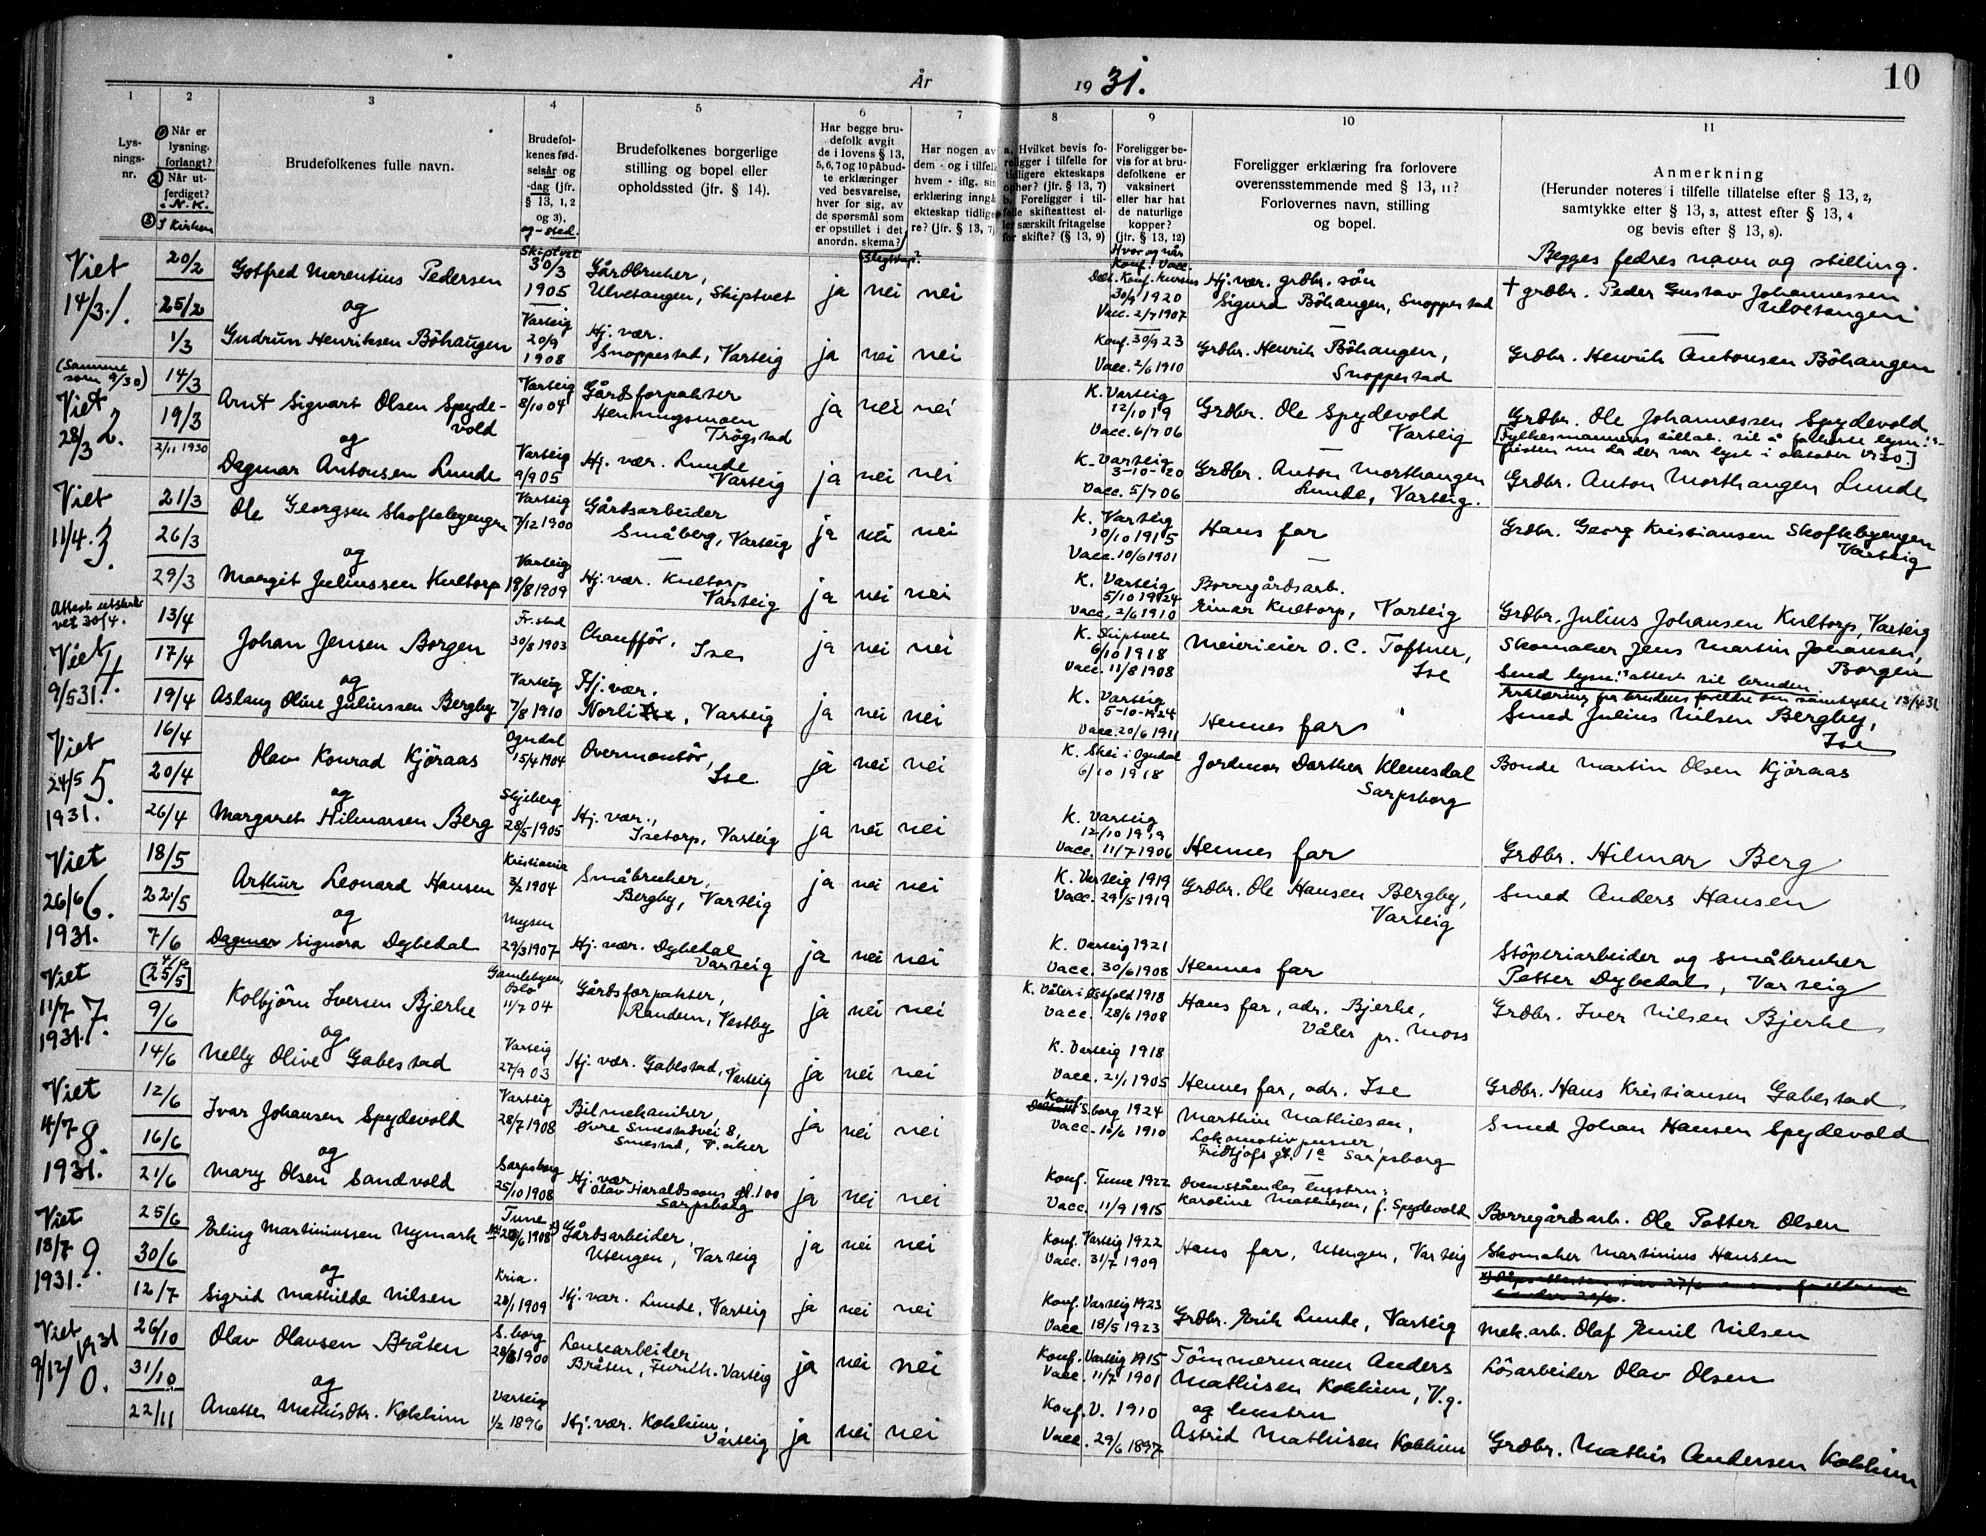 År 1931.
10
1
2
3
4
5
6
7
8
9
10
11
Lysnings-
nr.
Når er
lysning.
forlangt?
Når ut-
ferdiget?
N.K.
I Kirken
Brudefolkenes fulle navn.
Brudefol-
kenes fød-
selsår og
-dag (jfr.
§ 13, 1, 2
og 3).
og -sted.
Brudefolkenes borgerlige
stilling og bopel eller
opholdssted (jfr. § 14).
Har begge bru-
defolk avgit
de i lovens § 13,
5, 6, 7 og 10 påbud-
te erklæringer
ved besvarelse,
hver for sig, av
de spørsmål som
er opstillet i det
anordn. skema?
Slegtskap?
Har nogen av
dem - og i tilfelle
hvem - iflg. sin
erklæring inngå
ekteskap tidlige-
re? (jfr. § 13, 7)
a. Hvilket bevis fo-
religger i tilfelle for
tidligere ekteskaps
ophør? (jfr. § 13, 7)
b. Foreligger i til-
felle skifteattest el-
ler særskilt fritagelse
for skifte? (§ 13, 9)
Foreligger be-
vis for at bru-
defolkene er
vaksinert
eller har hat
de naturlige
kopper?
(jfr. § 13, 12)
Hvor og når
Konf. Vacc.
Foreligger erklæring fra forlovere
overensstemmende med § 13, 11?
Forlovernes navn, stilling
og bopel.
Anmerkning
(Herunder noteres i tilfelle tillatelse efter § 13, 2,
samtykke efter § 13, 3, attest efter § 13, 4
og bevis efter § 13, 8).
Begges fedres navn og stilling.
Viet
14/3. 1.
20/2
25/2
1/3
Gotfred Marentius Pedersen
og
Gudrun Henriksen Böhaugen
Skiptvet
30/3
1905
Varteig
20/9
1908
Gårdbruker,
Ulvetangen, Skiptvet
Hj. vær.
Snoppestad, Varteig
ja nei nei
ja nei nei
30/9 1920
Vacc. 2/7 1907
Konf. 30/9 23
Vacc. 2/6 1910
Hj. vær. grdbr. sön
Sigurd Böhaugen, Snoppestad
Grdbr. Henrik Böhaugen,
Snoppestad
† grdbr. Peder Gustav Johannessen
Ulvetangen
Grdbr. Henrik Antonsen Böhaugen
(Samme
som 9/30)
Viet
28/3 2.
14/3
19/3
2/11 1930
Arnt Sigvart Olsen Spyde-
vold
og
Dagmar Antonsen Lunde
Varteig
8/10 04
Varteig
9/9 05
Gårdsforpakter
Henningsmoen
Trögstad
Hj. vær. Lunde
Varteig
ja nei nei
ja nei nei
K. Varteig
12/10 19
Vacc. 6/7 06
K. Varteig
3-10-20
Vacc. 5/7 06
Grdbr. Ole Spydevold
Varteig
Grdbr. Anton Morthaugen
Lunde, Varteig.
Grdbr. Ole Johannessen Spydevold
Grdbr. Anton Morthaugen Lunde
Viet
11/4. 3.
21/3
26/3
29/3
Ole Georgsen Skoftebyengen
og
Margit Juliussen Kultorp
Varteig
7/12 1900
Varteig
19/8 1909
Gårdsarbeider
Småberg, Varteig
Hj. vær. Kultorp
Varteig
ja nei nei
ja nei nei
K. Varteig
10/10 1915
Vacc. 10/6 1901
K. Varteig
5/10 1924
Vacc. 2/6 1910
Hans far
Borregårdsarb.
Einar Kultorp, Varteig
Grdbr. Georg Kristiansen Skoftebyengen
Varteig
Grdbr. Julius Johansen Kultorp, Varteig
Attest utskre-
vet 30/4.
Viet
9/5 31. 4.
13/4
17/4
19/4
Johan Jensen Borgen
og
Aslaug Oline Juliussen Bergby
Fr.stad
30/8 1903
Varteig
7/8 1910
Chaufför,
Ise
Hj. vær.
Norli, Varteig
ja nei nei
ja nei nei
K. Skiptvet
6/10 1918
Vacc. 11/8 1908
K. Varteig
5-10-1924
Vacc. 20/6 1911
Meierieier O. C. Toftner,
Ise
Hennes far
Skomaker Jens Martin Johansen,
Borgen
Send lysn.s attest til bruden
Erklæring fra brudens foreldre om samtykke 13/4 31
Smed Julius Nilsen Bergby,
Ise
Viet
24/5 5.
1931.
16/4
20/4
26/4
Olav Konrad Kjöraas
og
Margaret Hilmarsen Berg
Ogndal
15/4 1904
Skjeberg
28/5 1905
Overmontör,
Ise.
Hj. vær.,
Isetorp, Varteig
ja nei nei
ja nei nei
K. Skei i Ogndal
6/10 1918
K. Varteig
12/10 1919
Vacc. 11/7 1906
Jordmor Dorthea Klemsdal
Sarpsborg
Hennes far
Bonde Martin Olsen Kjöraas
Grdbr. Hilmar Berg
Viet
26/6 6.
1931.
18/5
22/5
7/6
Arthur Leonard Hansen
og
Dagmar Signora Dybedal
Kristiania
3/2 1904
Mysen
29/3 1907
Småbruker,
Bergby, Varteig
Hj. vær. Dybedal
Varteig
ja nei nei
ja nei nei
K. Varteig 1919
Vacc. 29/5 1919
K. Varteig 1921
Vacc. 30/6 1908
Grdbr. Ole Hansen Bergby,
Varteig
Hennes far
Smed Anders Hansen
Stöperiarbeider og småbruker
Petter Dybedal, Varteig
Viet
11/7 7.
1931.
4/6
[25/5]
9/6
14/6
Kolbjörn Iversen Bjerke
og
Nelly Olive Gabestad
Gamlebyen,
Oslo
11/7 04
Varteig
27/9 03
Gårdsforpakter,
Randem, Vestby
Hj. vær. Gabestad, Varteig
ja nei nei
ja nei nei
K. Våler i Østfold 1918
Vacc. 28/6 1908
K. Varteig 1918
Vacc. 21/1 1905
Hans far, adr. Bjerke,
Våler pr. Moss
Hennes far, adr. Ise
Grdbr. Iver Nilsen Bjerke
Grdbr. Hans Kristiansen Gabestad
Viet
4/7 8.
1931.
12/6
16/6
21/6
Ivar Johansen Spydevold
og
Mary Olsen Sandvold
Varteig
28/7 1908
Sarpsborg
25/10 1908
Bilmekaniker,
Øvre Smestadvei 8,
Smestad, V. Aker
Hj. vær.
Olav Haraldssons gt. 100
Sarpsborg
ja nei nei
ja nei nei
Konf. S.borg 1924
Vacc. 10/6 1910
Konf. Tune 1922
Vacc. 11/9 1915
Marthin Mathiesen,
Lokomotivpusser
Fridtjofs gt. 1c Sarpsborg
Ovenståendes hustru:
Karoline Mathiesen, f. Spydevold
Smed Johan Hansen Spydevold
Borregårdsarb. Ole Petter Olsen
Viet
18/7 9.
1931.
25/6
30/6
12/7
Erling Martiniussen Nymark
og
Sigrid Mathilde Nilsen
Tune
/6 1908
Kria.
28/1 1909
Gårdsarbeider,
Utengen, Varteig
Hj. vær. Lunde, Varteig
ja nei nei
ja nei nei
Konf. Varteig 1922
Vacc. 31/7 1909
Konf. Varteig 1923
Vacc. 18/5 1923
Hans far, Utengen, Varteig
Grdbr. Erik Lunde, Varteig
Skomaker Martinius Hansen
Mek. arb. Olaf Emil Nilsen
Viet
9/12 1931
10.
26/10
31/10
22/11
Olav Olavsen Bråten
og
Anette Mathisdtr. Kokkim
S.borg
28/8 1900
Varteig
1/2 1896
Lensearbeider
Bråten, Furuh. Varteig
Hj. vær. Kokkim,
Varteig
ja nei nei
ja nei nei
Konf. Varteig 1915
Vacc. 11/7 1901
Konf. V. 1910
Vacc. 29/6 1897
Tömmermann Anders
Mathisen Kokkim, V.g.
og hustru
Astrid Mathisen Kokkim
Lösarbeider Olav Olsen
Grdbr. Mathis Andersen Kokkim